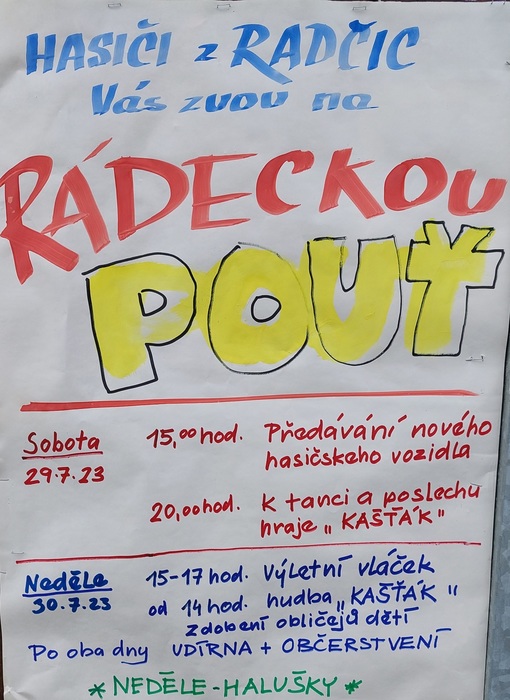 HASIČI z RADČIC
Vás zvou na
RÁDECKOU
POUŤ
Sobota 15,00 hod. Předávání nového
29.7.23 hasičskeho vozidla
20,00 hod. K tanci a poslechu
hraje „KAŠŤÁK"
Neděle 15-17 hod. Výletní vláček
30.7.23 od 14 hod. hudba „KAŠŤÁK"
zdobení obličejů dětí
Po oba dny UDÍRNA + OBČERSTVENÍ
* NEDĚLE - HALUŠKY *